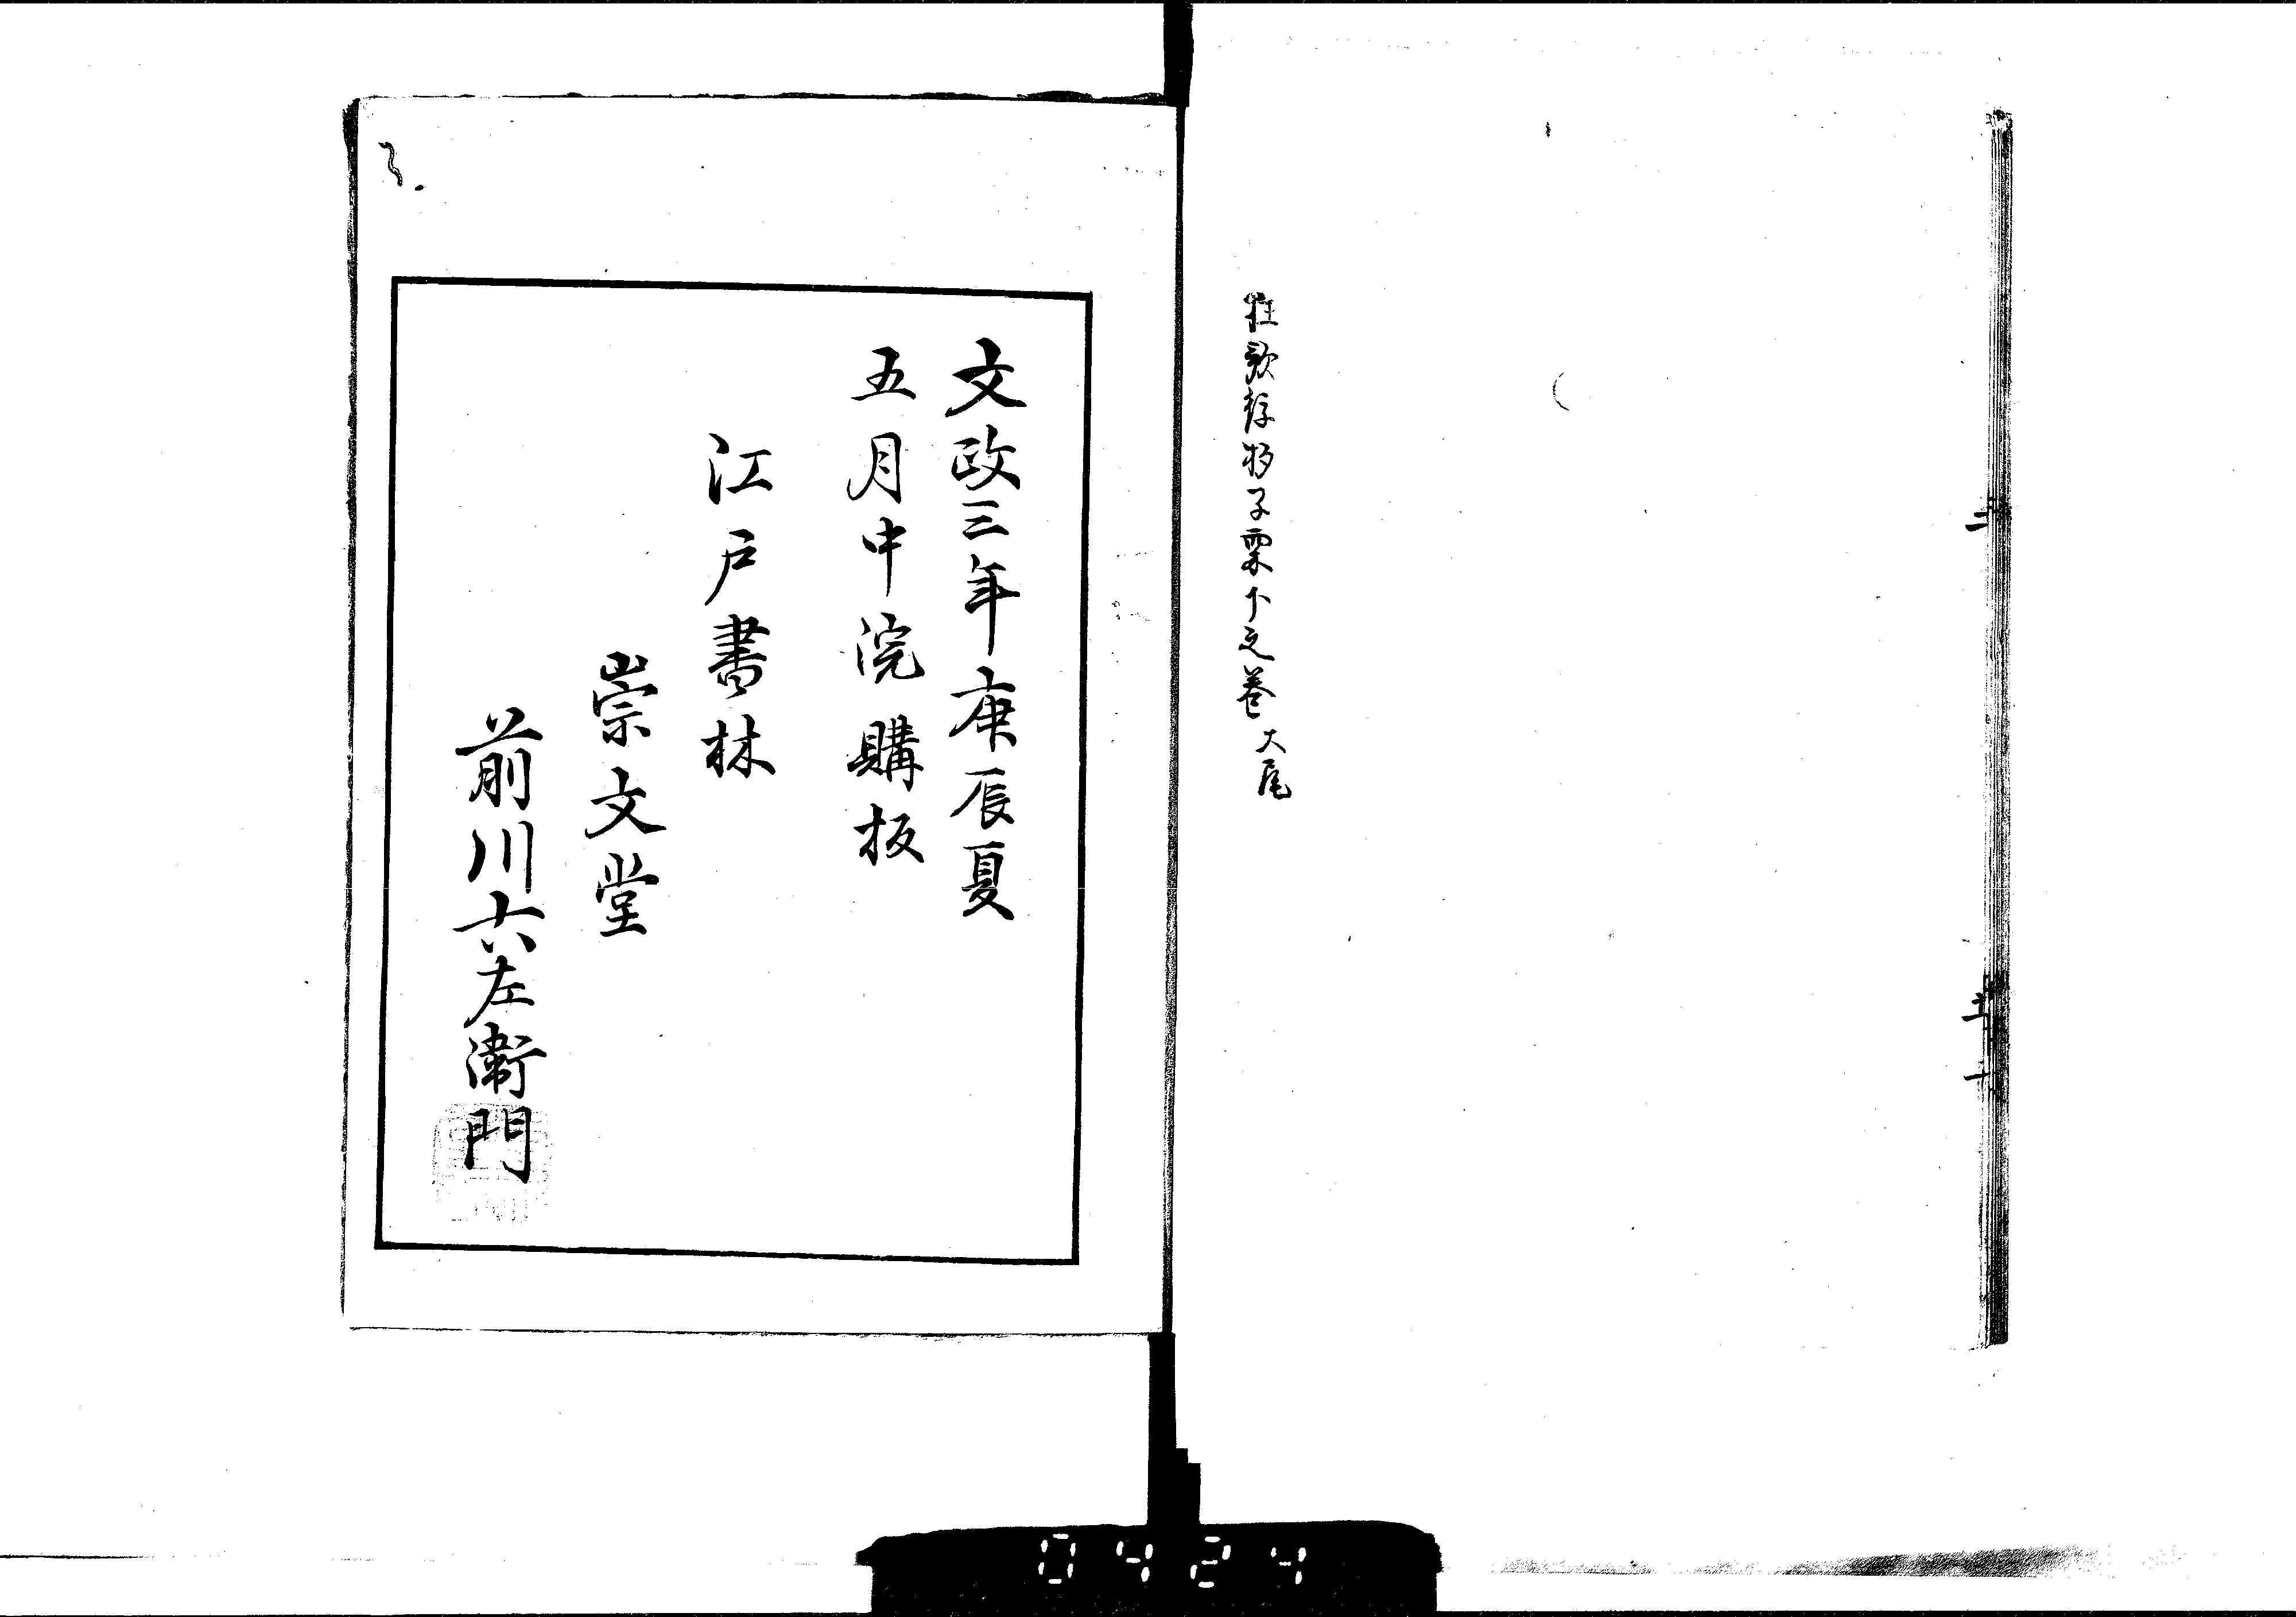 狂歌待物子栗下之巻 大尾
文政三年庚辰夏
五月中浣購板
江戸書林
崇文堂
前川六左衛門
0424